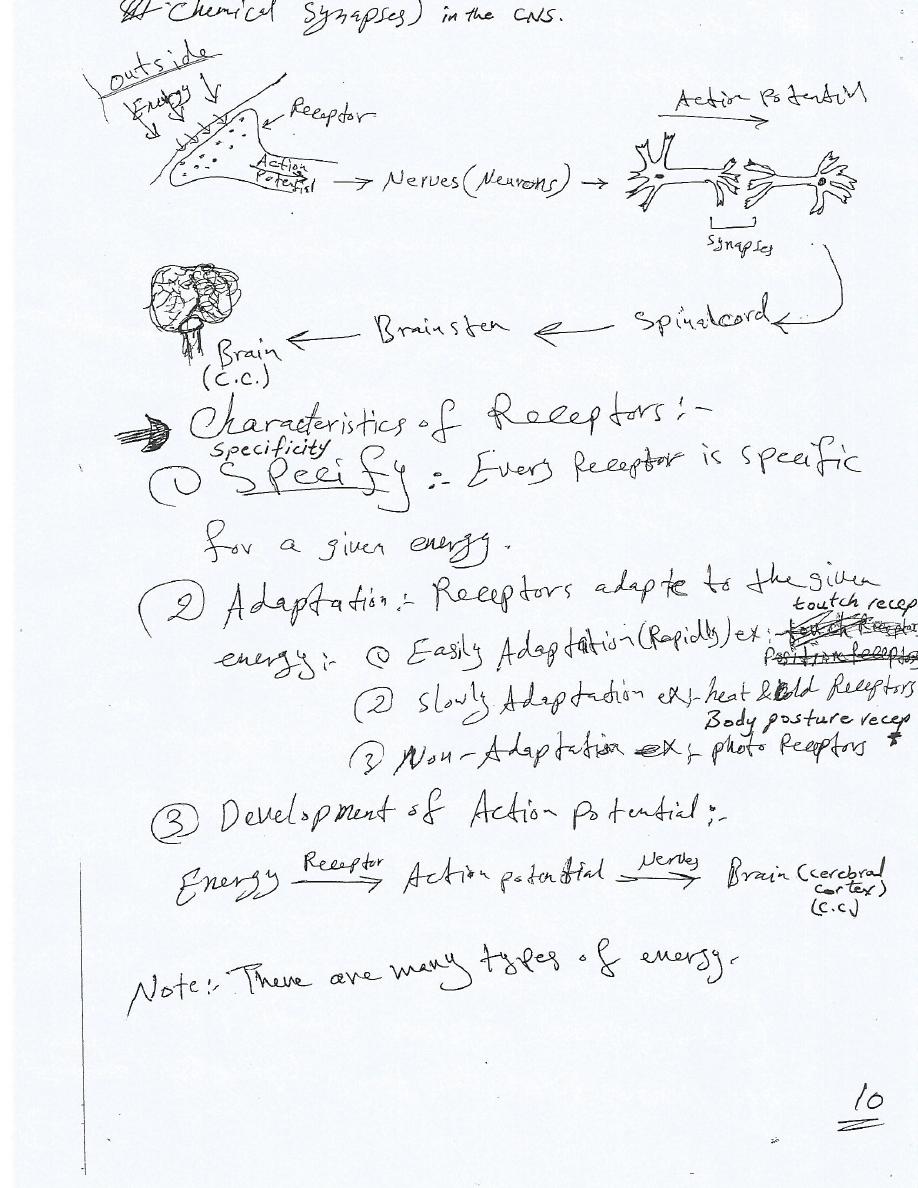 (Chemical Synapses) in the CNS.
outside
Energy
Receptor
Action Potential
Action
Potential
→ Nerves (Neurons) →
Synapses
Brain ← Brainsten ← Spinalcord
(C.C.)
Characteristics of Receptors:-
Specificity
① Specify :- Every Receptor is specific
for a given energy.
② Adaptation:- Receptors adapte to the given
toutch recep
energy:- ① Easily Adaptation (Rapidly) ex:- touch Receptor
Position Receptor
② Slowly Adaptation ex:- heat & cold Receptors
Body posture recep
③ Non-Adaptation ex:- photo Receptors
③ Development of Action potential:-
Energy Receptor → Action potential Nerves → Brain (cerebral
cortex)
(C.C.)
Note:- There are many types of energy.
10